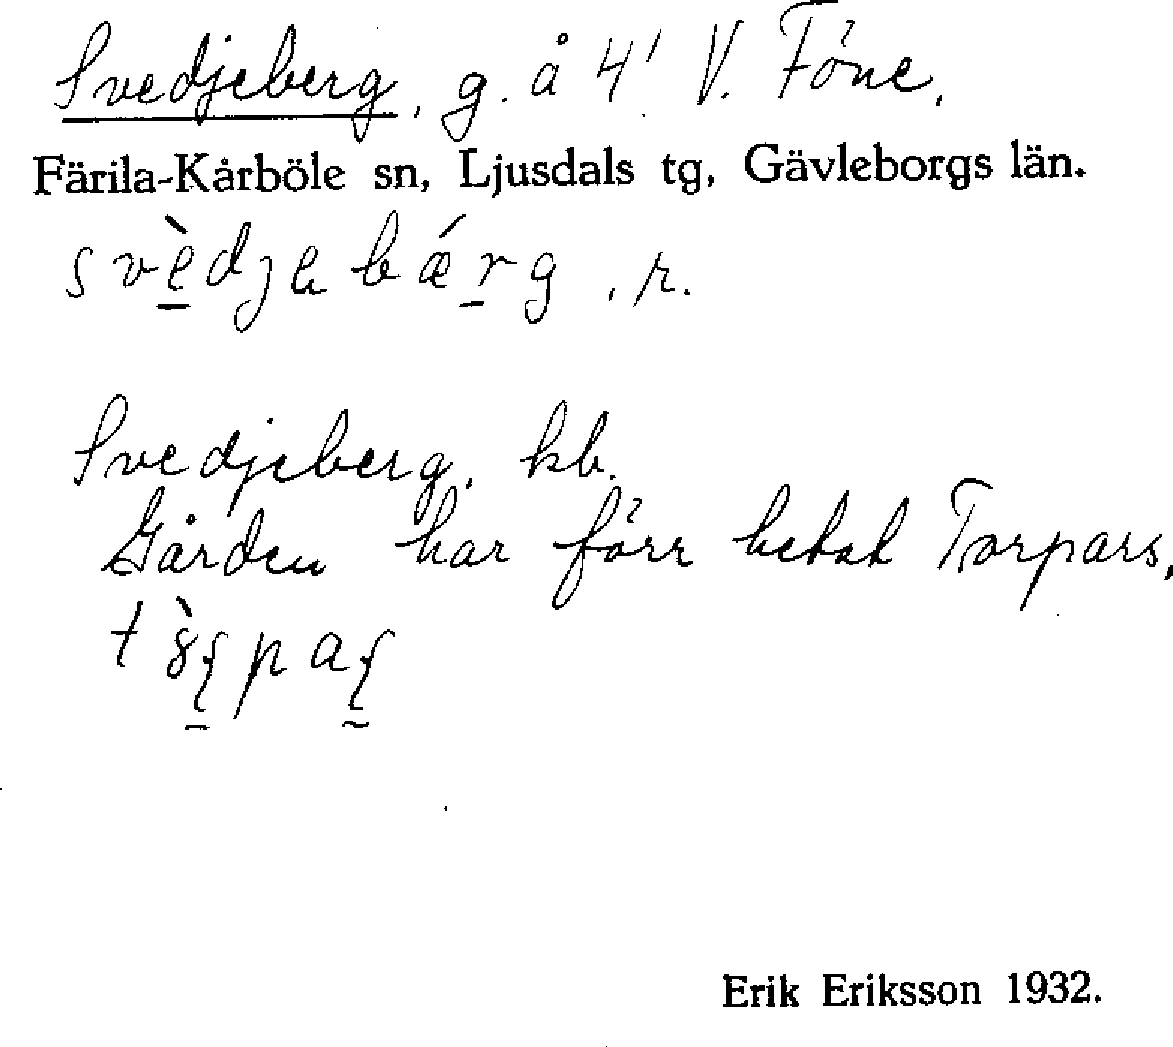 Svedjeberg, g. å 4' V. Föne.
Färila-Kårböle sn, Ljusdals tg, Gävleborgs län.
svèdjebǽrg, r.
Svedjeberg, kb.
Gården har förr hetat Torpars,